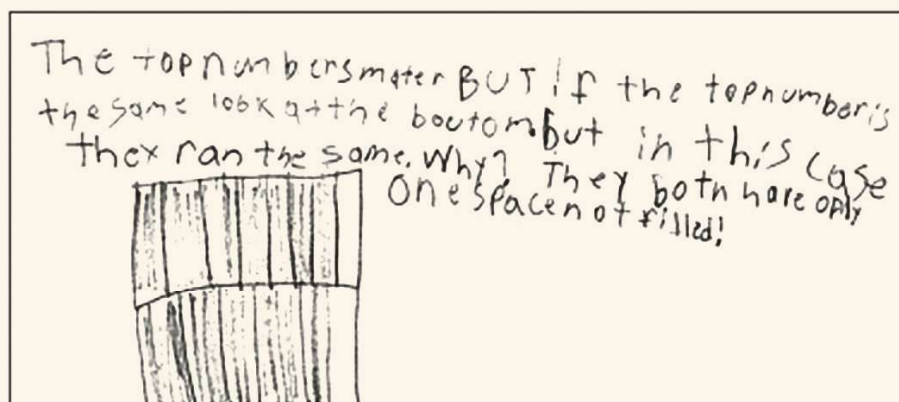 The topnumbers mater BUT if the topnumber is
the same look at the boutom. But in this case
they ran the same. Why? They both have only
one space not filled!